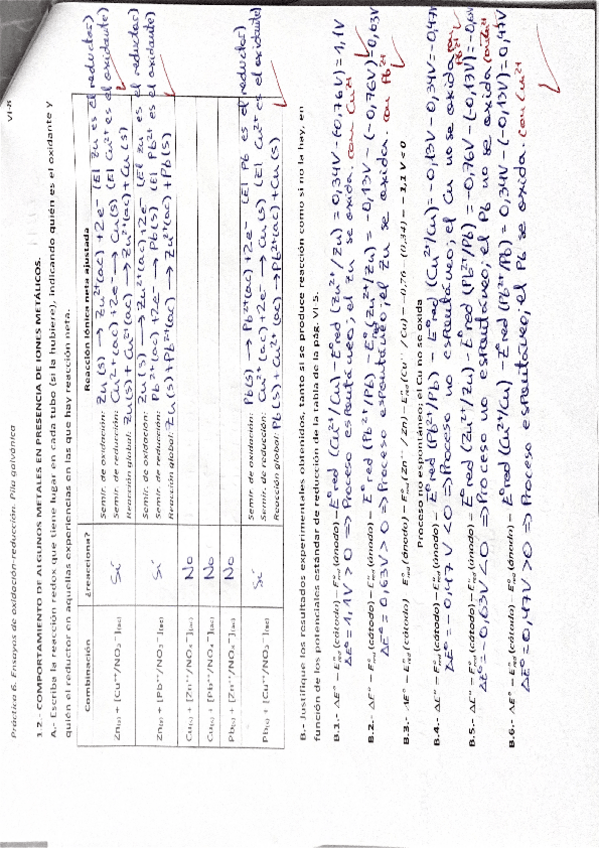 Práctica 6. Ensayos de oxidación-reducción. Pila galvánica
VI-8
1.2.- COMPORTAMIENTO DE ALGUNOS METALES EN PRESENCIA DE IONES METÁLICOS.
A.- Escriba la reacción redox que tiene lugar en cada tubo (si la hubiere), indicando quién es el oxidante y
quién el reductor en aquellas experiencias en las que hay reacción neta.
Combinación ¿reacciona? Reacción iónica neta ajustada
Zn(s) + [Cu²⁺/NO₃⁻](ac) Sí
Semir. de oxidación: Zn(s) → Zn²⁺(ac) + 2e⁻ (El Zn es el reductor)
Semir. de reducción: Cu²⁺(ac) + 2e⁻ → Cu(s) (El Cu²⁺ es el oxidante)
Reacción global: Zn(s) + Cu²⁺(ac) → Zn²⁺(ac) + Cu(s)
Zn(s) + [Pb²⁺/NO₃⁻](ac) Sí
Semir. de oxidación: Zn(s) → Zn²⁺(ac) + 2e⁻ (El Zn es el reductor)
Semir. de reducción: Pb²⁺(ac) + 2e⁻ → Pb(s) (El Pb²⁺ es el oxidante)
Reacción global: Zn(s) + Pb²⁺(ac) → Zn²⁺(ac) + Pb(s)
Cu(s) + [Zn²⁺/NO₃⁻](ac) No
Cu(s) + [Pb²⁺/NO₃⁻](ac) No
Pb(s) + [Zn²⁺/NO₃⁻](ac) No
Pb(s) + [Cu²⁺/NO₃⁻](ac) Sí
Semir. de oxidación: Pb(s) → Pb²⁺(ac) + 2e⁻ (El Pb es el reductor)
Semir. de reducción: Cu²⁺(ac) + 2e⁻ → Cu(s) (El Cu²⁺ es el oxidante)
Reacción global: Pb(s) + Cu²⁺(ac) → Pb²⁺(ac) + Cu(s)
B.- Justifique los resultados experimentales obtenidos, tanto si se produce reacción como si no la hay, en
función de los potenciales estándar de reducción de la tabla de la pág. VI-5.
B.1.- ΔE° = E°red(cátodo) − E°red(ánodo) = E°red (Cu²⁺/Cu) − E°red (Zn²⁺/Zn) = 0,34V − (−0,76V) = 1,1V
ΔE° = 1,1V > 0 ⇒ Proceso espontáneo; el Zn se oxida. con Cu²⁺
B.2.- ΔE° = E°red(cátodo) − E°red(ánodo) = E°red (Pb²⁺/Pb) − E°red (Zn²⁺/Zn) = −0,13V − (−0,76V) = 0,63V
ΔE° = 0,63V > 0 ⇒ Proceso espontáneo; el Zn se oxida. con Pb²⁺
B.3.- ΔE° = E°red(cátodo) − E°red(ánodo) = E°red(Zn²⁺/Zn) − E°red(Cu²⁺/Cu) = −0,76 − (0,34) = −1,1 V < 0
Proceso no espontáneo; el Cu no se oxida
B.4.- ΔE° = E°red(cátodo) − E°red(ánodo) = E°red (Pb²⁺/Pb) − E°red (Cu²⁺/Cu) = −0,13V − 0,34V = −0,47V
ΔE° = −0,47V < 0 ⇒ Proceso no espontáneo; el Cu no se oxida con Pb²⁺
B.5.- ΔE° = E°red(cátodo) − E°red(ánodo) = E°red (Zn²⁺/Zn) − E°red (Pb²⁺/Pb) = −0,76V − (−0,13V) =
ΔE° = −0,63V < 0 ⇒ Proceso no espontáneo; el Pb no se oxida
B.6.- ΔE° = E°red(cátodo) − E°red(ánodo) = E°red (Cu²⁺/Cu) − E°red (Pb²⁺/Pb) = 0,34V − (−0,13V) = 0,47V
ΔE° = 0,47V > 0 ⇒ Proceso espontáneo; el Pb se oxida. con Cu²⁺